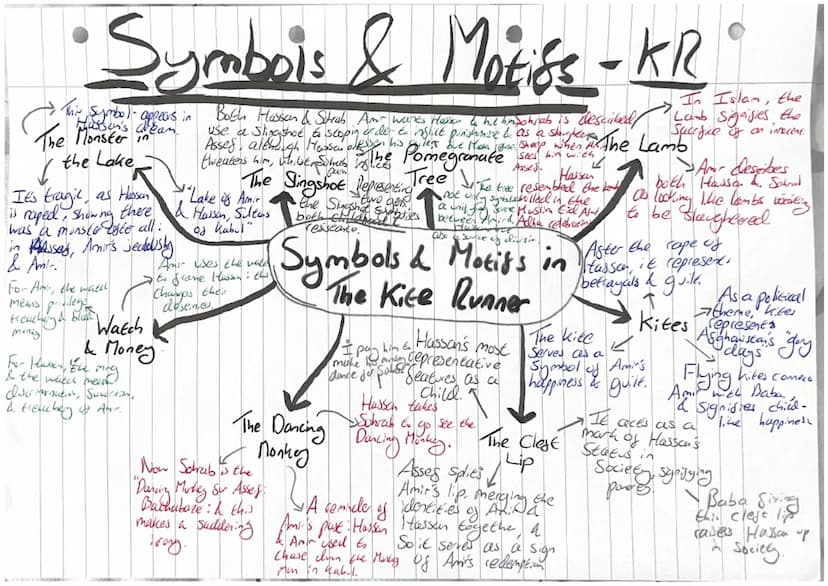 Symbols & Motifs - KR
This symbol appears in
Hassan's dream.
The Monster in
the Lake
It's tragic, as Hassan
is raped, showing there
was a monster after all:
in Assef, Amir's jealousy
& Amir.
"Lake of Amir
& Hassan, Sultans
of Kabul"
Both Hassan & Sohrab
use a Slingshot to stop
Assef, although Hassan only
threatens him, whilst Sohrab
inflicts pain
The Slingshot
Representing
two acts,
the Slingshot symbolises
both childhood &
resistance.
Amir wants Hassan to hit him
in order to inflict punishment &
lessen his guilt, but Hassan
The Pomegranate
Tree
The tree
not only
a unifying source
between Amir &
also a source of division
Sohrab is described
as a slaughter
sheep when Amir
sees him with
Assef.
Hassan
resembled the lamb
killed in the
Muslim Eid Al
Adha celebration
The Lamb
In Islam, the
Lamb signifies, the
sacrifice of an innocent.
Amir describes
both Hassan & Sohrab
as looking like lambs waiting
to be slaughtered.
Symbols & Motifs in
The Kite Runner
After the rape of
Hassan, it represents
betrayals & guilt.
Kites
As a political
theme, kites
represents
Afghanistan's "glory
days"
The Kite
serves as a
Symbol of Amir's
happiness & guilt.
Flying kites connects
Amir with Baba,
& signifies child-
like happiness
Amir uses the watch
to frame Hassan: this
changes their
destinies.
Watch
& Money
For Amir, the watch
means privilege,
treachery & blood
money
For Hassan, the money
& the watch means
discrimination, Survivism,
& treachery of Amir.
The Dancing
Monkey
I pay him to
make his monkey
dance for Sohrab
Hassan takes
Sohrab to go see the
Dancing Monkey.
Now Sohrab is the
"Dancing Monkey for Assef:
Bachabaze: & this
makes a saddening
irony.
A reminder of
Amir's past: Hassan
& Amir used to
chase down the Monkey
Man in Kabul.
Hassan's most
representative
features as a
Child.
The Cleft
Lip
Assef splits
Amir's lip, merging the
identities of Amir &
Hassan together, &
So it serves as a sign
of Amir's redemption
It acts as a
mark of Hassan's
Status in
Society, signifying
poverty.
Baba fixing
this cleft lip
raises Hassan up
in society.